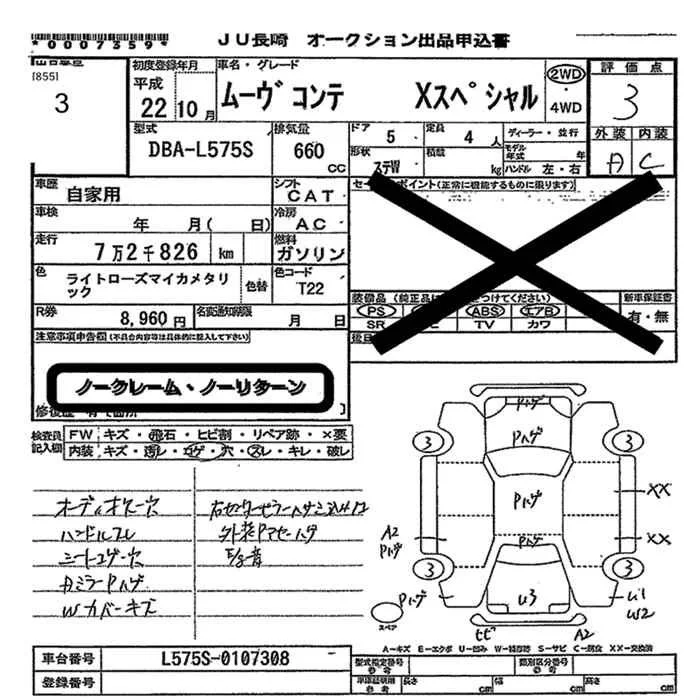 *0007359*
JU長崎 オークション出品申込書
[855]
3
初度登録年月
平成
22 10 月
車名・グレード
ムーヴ コンテ Xスペシャル
2WD
・
4WD
評価点
3
外装 内装
A C
型式
DBA-L575S
排気量
660
CC
ドア
5
定員
4 人
形状
ステW
積載
kg
ディーラー・並行
モデル年式 年
ハンドル 左・右
車歴
自家用
シフト
CAT
車検
年 月( 日)
冷房
AC
走行
7万2千826 km
燃料
ガソリン
色
ライトローズマイカメタリック
色替
色コード
T22
R券
8,960 円
名変通知期限
月 日
ポイント(正常に機能するものに限ります)
装備品
PS
ABS
エアB
SR
TV
カワ
新車保証書
有・無
注意事項申告欄(不具合内容等は具体的に記入して下さい)
ノークレーム・ノーリターン
検査員記入欄
FW キズ・飛石・ヒビ割・リペア跡・×要
内装 キズ・汚レ・コゲ・穴・スレ・キレ・破レ
オーディオ穴
ハンドルスレ
シートコゲ穴
Pハゲ
Wカバーキズ
Pハゲ
Pハゲ
Pハゲ
Pハゲ
3
3
3
3
XX
XX
A2
Pハゲ
Pハゲ
スペア
U3
U1
W2
A2
A-キズ E-エクボ U-凹み W-補修跡 S-サビ C-腐食 XX-交換済
車台番号
L575S-0107308
登録番号
型式指定番号
参考
類別区分番号
参考
車庫証明用
参考
長さ cm
幅 cm
高さ cm